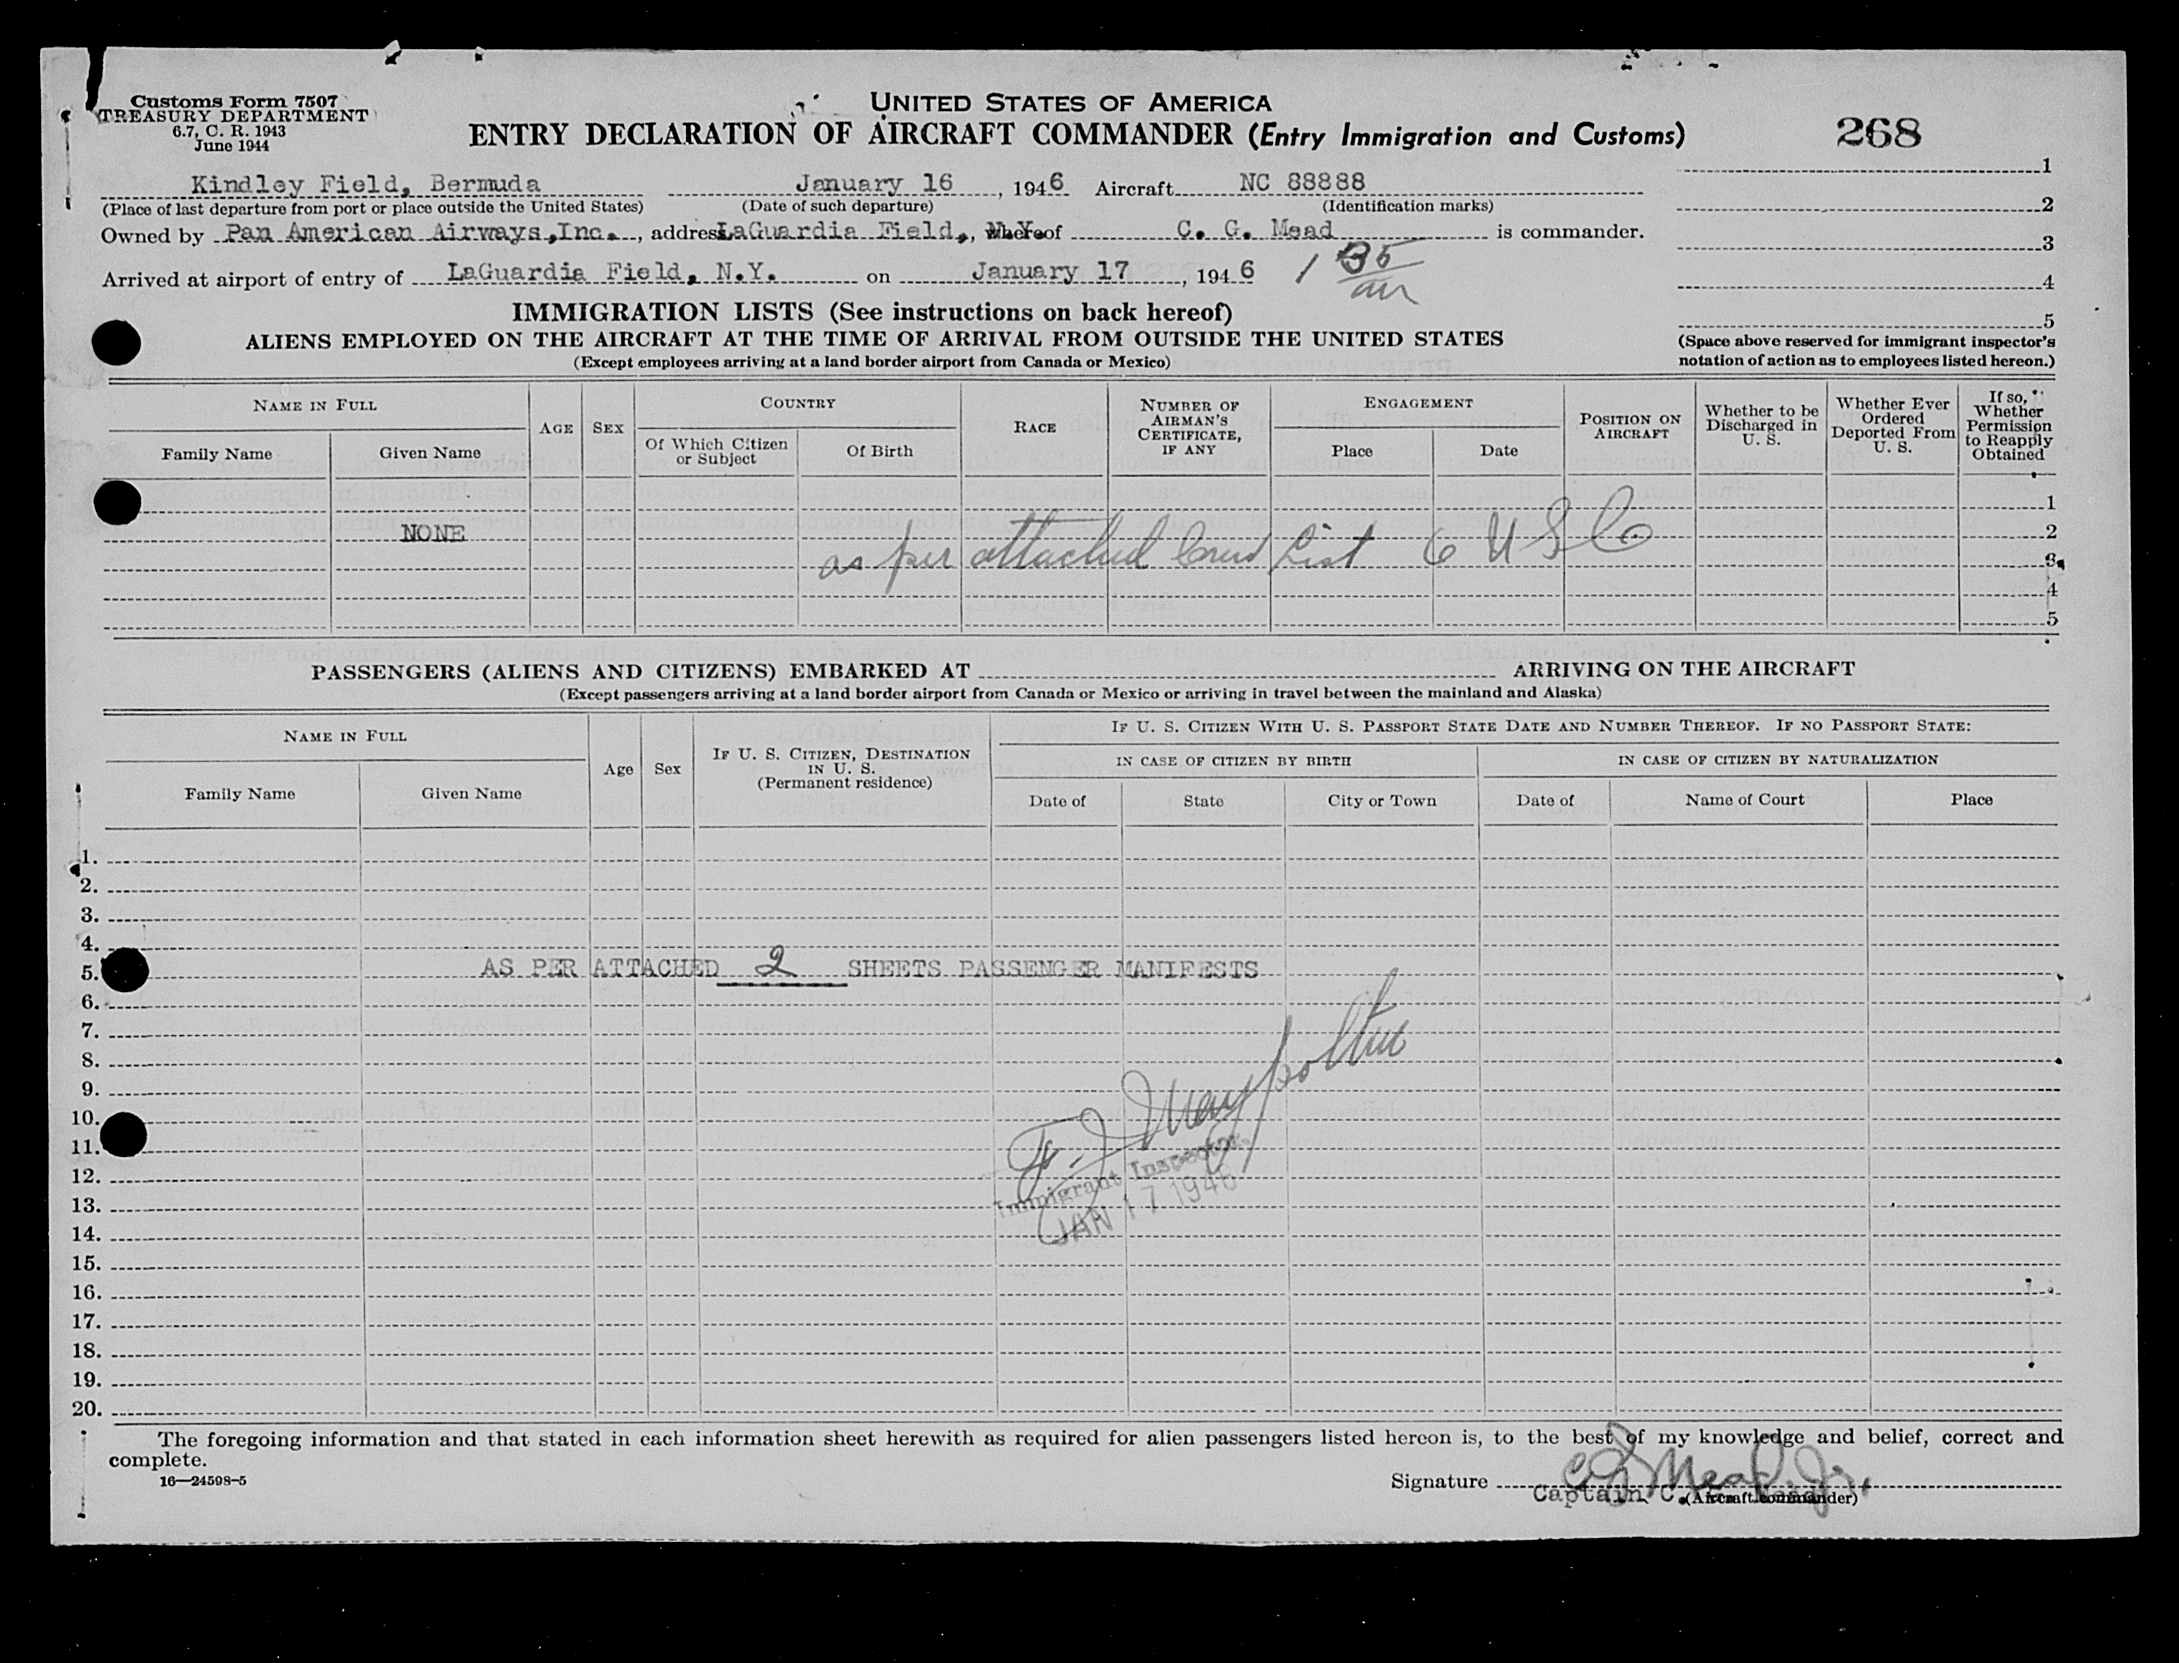 Customs Form 7507
TREASURY DEPARTMENT
6.7, C. R. 1943
June 1944
UNITED STATES OF AMERICA
ENTRY DECLARATION OF AIRCRAFT COMMANDER (Entry Immigration and Customs)
268
Kindley Field, Bermuda January 16, 1946 Aircraft NC 88888
(Place of last departure from port or place outside the United States) (Date of such departure) (Identification marks)
Owned by Pan American Airways, Inc., address LaGuardia Field, N.Y. whereof C. G. Mead is commander.
Arrived at airport of entry of LaGuardia Field, N.Y. on January 17, 1946 1 35 am
1
2
3
4
5
(Space above reserved for immigrant inspector's
notation of action as to employees listed hereon.)
IMMIGRATION LISTS (See instructions on back hereof)
ALIENS EMPLOYED ON THE AIRCRAFT AT THE TIME OF ARRIVAL FROM OUTSIDE THE UNITED STATES
(Except employees arriving at a land border airport from Canada or Mexico)
NAME IN FULL
Family Name
Given Name
AGE
SEX
COUNTRY
Of Which Citizen
or Subject
Of Birth
RACE
NUMBER OF
AIRMAN'S
CERTIFICATE,
IF ANY
ENGAGEMENT
Place
Date
POSITION ON
AIRCRAFT
Whether to be
Discharged in
U. S.
Whether Ever
Ordered
Deported From
U. S.
If so,
Whether
Permission
to Reapply
Obtained
1
NONE 2
as per attached Crew List 6 USC
3
4
5
PASSENGERS (ALIENS AND CITIZENS) EMBARKED AT ARRIVING ON THE AIRCRAFT
(Except passengers arriving at a land border airport from Canada or Mexico or arriving in travel between the mainland and Alaska)
NAME IN FULL
Family Name
Given Name
Age
Sex
IF U. S. CITIZEN, DESTINATION
IN U. S.
(Permanent residence)
IF U. S. CITIZEN WITH U. S. PASSPORT STATE DATE AND NUMBER THEREOF. IF NO PASSPORT STATE:
IN CASE OF CITIZEN BY BIRTH
Date of
State
City or Town
IN CASE OF CITIZEN BY NATURALIZATION
Date of
Name of Court
Place
1.
2.
3.
4.
5. AS PER ATTACHED 2 SHEETS PASSENGER MANIFESTS
6.
7.
8.
9.
10.
11.
12.
13.
14.
15.
16.
17.
18.
19.
20.
Immigrant Inspector
JAN 17 1946
The foregoing information and that stated in each information sheet herewith as required for alien passengers listed hereon is, to the best of my knowledge and belief, correct and
complete.
16—24598-5
Signature C G Mead, Jr.
Captain C.
(Aircraft commander)